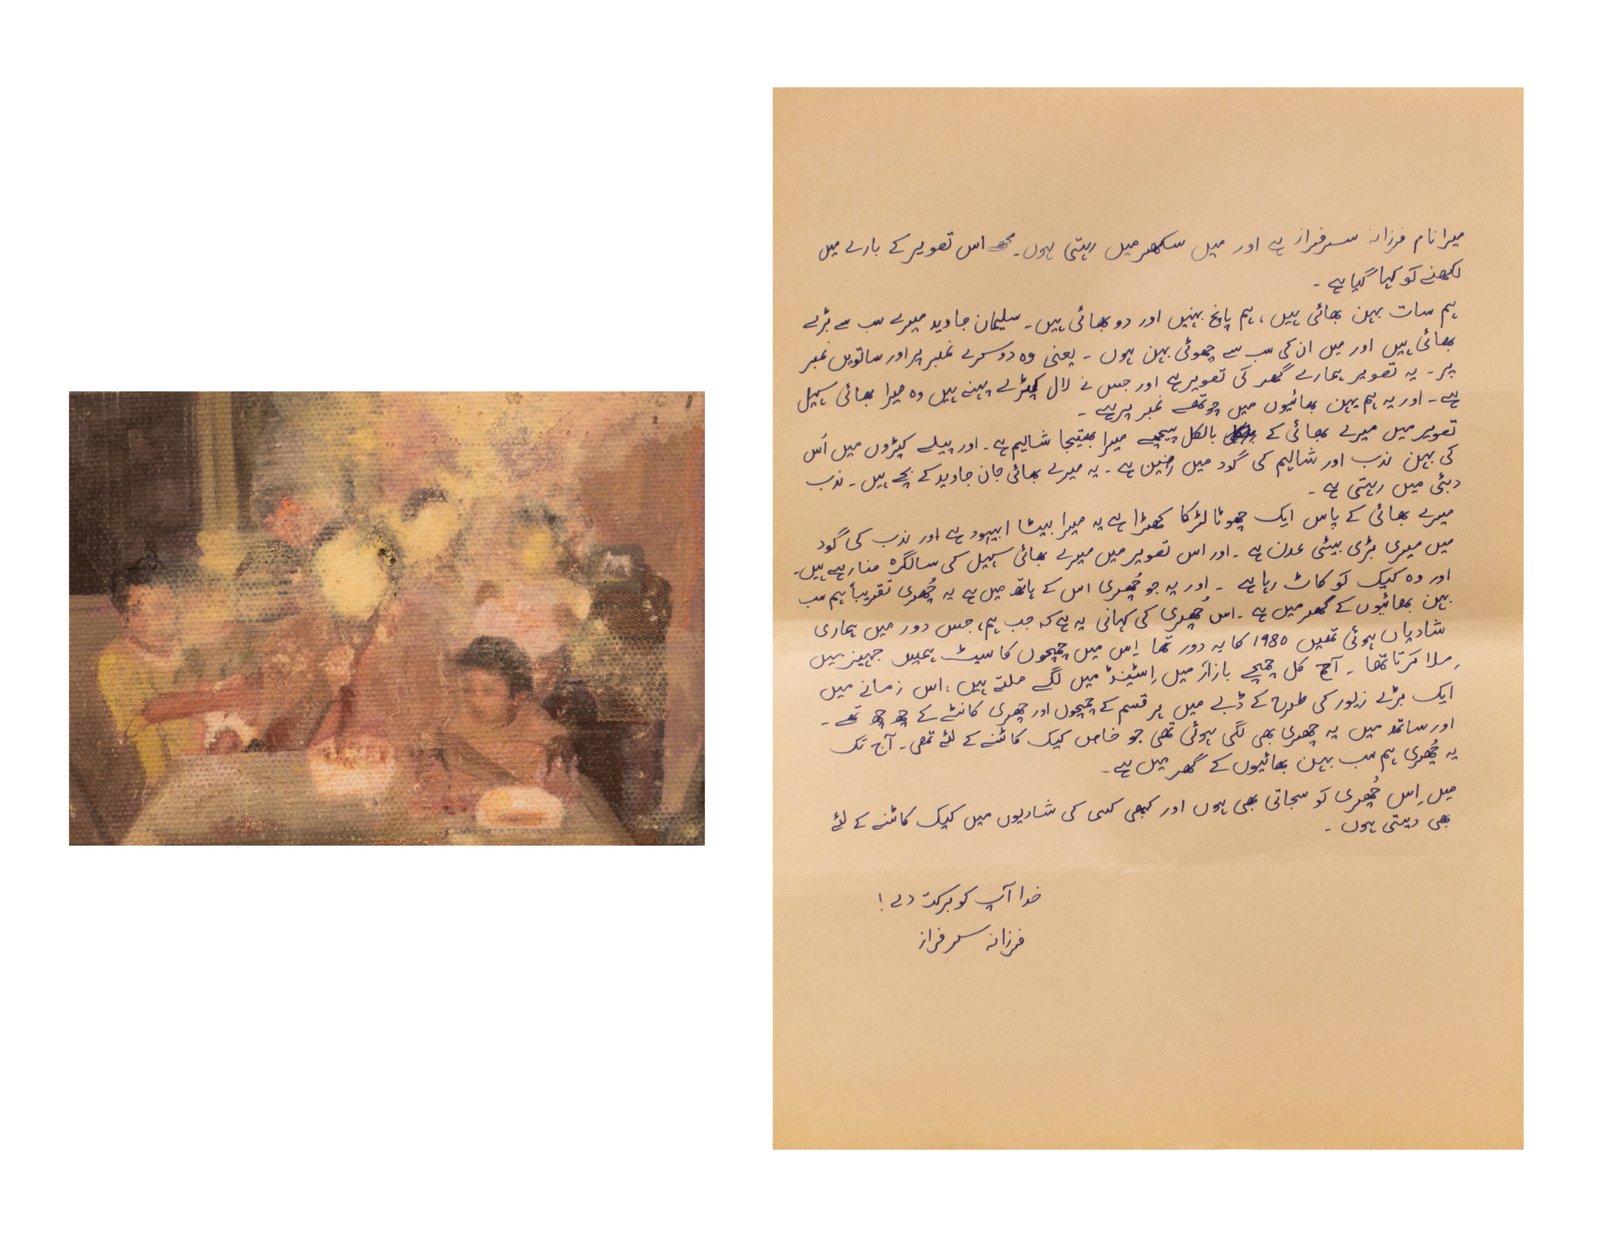 میرا نام فرزانہ سرفراز ہے اور میں سکھر میں رہتی ہوں۔ مجھے اس تصویر کے بارے میں
لکھنے کو کہا گیا ہے ۔
ہم سات بہن بھائی ہیں ، ہم پانچ بہنیں اور دو بھائی ہیں۔ سلیمان جاوید میرے سب سے بڑے
بھائی ہیں اور میں ان کی سب سے چھوٹی بہن ہوں ۔ یعنی وہ دوسرے نمبر پر اور ساتویں نمبر
پر ۔ یہ تصویر ہمارے گھر کی تصویر ہے اور جس نے لال کپڑے پہنے ہیں وہ میرا بھائی سہیل
ہے ۔ اور یہ ہم بہن بھائیوں میں چوتھے نمبر پر ہے ۔
تصویر میں میرے بھائی کے بالکل پیچھے میرا بھتیجا شالیم ہے ۔ اور پیلے کپڑوں میں اُس
کی بہن ندب اور شالیم کی گود میں ہے ۔ یہ میرے بھائی جان جاوید کے بچے ہیں ۔ ندب
دبئی میں رہتی ہے ۔
میرے بھائی کے پاس ایک چھوٹا لڑکا کھڑا ہے یہ میرا بیٹا ابیہود ہے اور ندب کی گود
میں میری بڑی بیٹی عدن ہے ۔ اور اس تصویر میں میرے بھائی سہیل کی سالگرہ منا رہے ہیں۔
اور وہ کیک کو کاٹ رہا ہے ۔ اور یہ جو چُھری اس کے ہاتھ میں ہے یہ چُھری تقریباً ہم سب
بہن بھائیوں کے گھر میں ہے ۔ اس چُھری کی کہانی یہ ہے کہ جب ہم، جس دور میں ہماری
شادیاں ہوئی تھیں 1980 کا یہ دور تھا اِس میں چمچوں کا سیٹ ہمیں جہیز میں
مِلا کرتا تھا ۔ آج کل چمچے بازار میں اِسٹینڈ میں لگے ملتے ہیں ، اس زمانے میں
ایک بڑے زیور کی طرح کے ڈبے میں ہر قسم کے چمچوں اور چھری کانٹے کے چھ چھ تھے ۔
اور ساتھ میں یہ چھری بھی لگی ہوئی تھی جو خاص کیک کاٹنے کے لئے تھی ۔ آج تک
یہ چُھری ہم سب بہن بھائیوں کے گھر میں ہے ۔
میں اِس چُھری کو سجاتی بھی ہوں اور کبھی کسی کی شادیوں میں کیک کاٹنے کے لئے
بھی دیتی ہوں ۔
خدا آپ کو برکت دے !
فرزانہ سرفراز